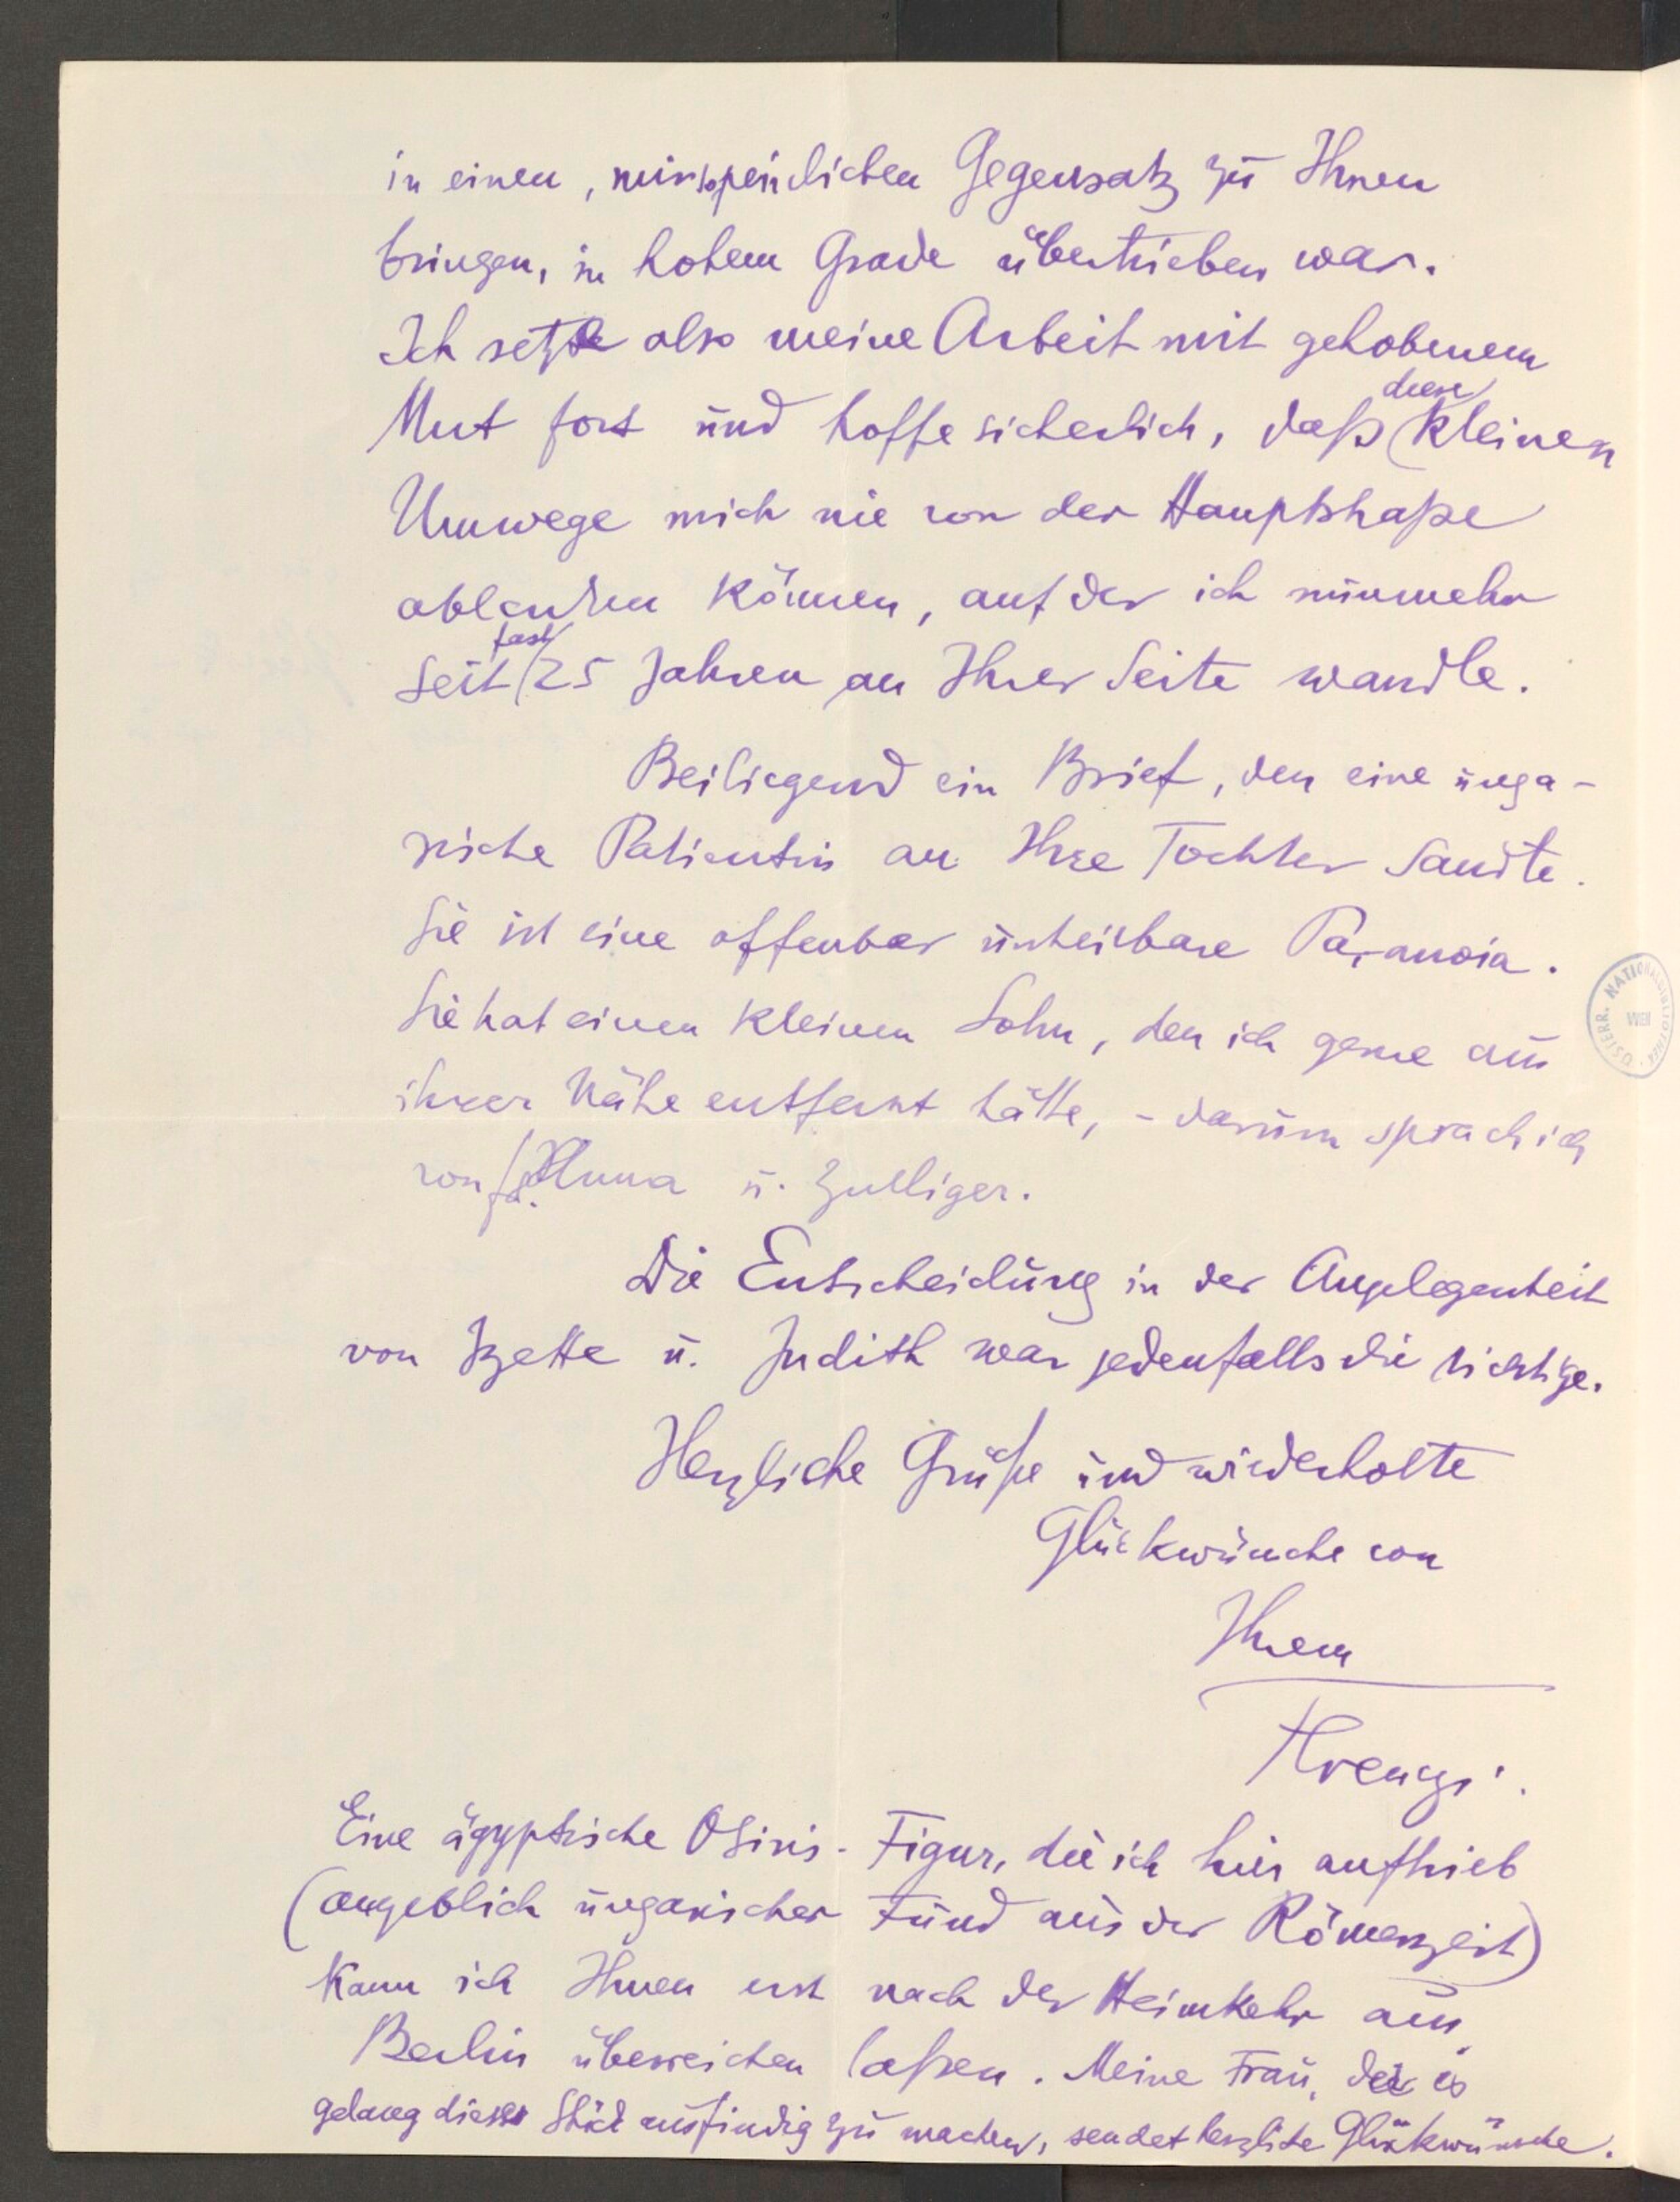 in einen, mir so peinlichen Gegensatz zu Ihnen
bringen, in hohem Grade übertrieben war.
Ich setze also meine Arbeit mit gehobenem
Mut fort und hoffe sicherlich, daß diese kleinen
Umwege mich nie von der Hauptstraße
ablenken können, auf der ich nunmehr
seit fast 25 Jahren an Ihrer Seite wandle.
Beiliegend ein Brief, den eine unga-
rische Patientin an Ihre Tochter sandte.
Sie ist eine offenbar unheilbare Paranoia.
Sie hat einen kleinen Sohn, den ich gerne aus
ihrer Nähe entfernt hätte, - darum sprach ich
von Anna u. Zulliger.
Die Entscheidung in der Angelegenheit
von Izette u. Judith war jedenfalls die richtige.
Herzliche Grüße und wiederholte
Glückwünsche von
Ihrem
Ferenczi.
Eine ägyptische Osiris-Figur, die ich hier auftrieb
(angeblich ungarischer Fund aus der Römerzeit)
kann ich Ihnen erst nach der Heimkehr aus
Berlin überreichen laßen. Meine Frau, der es
gelang dieses Stück ausfindig zu machen, sendet herzliche Glückwünsche.
ÖSTERR. NATIONALBIBLIOTHEK
WIEN